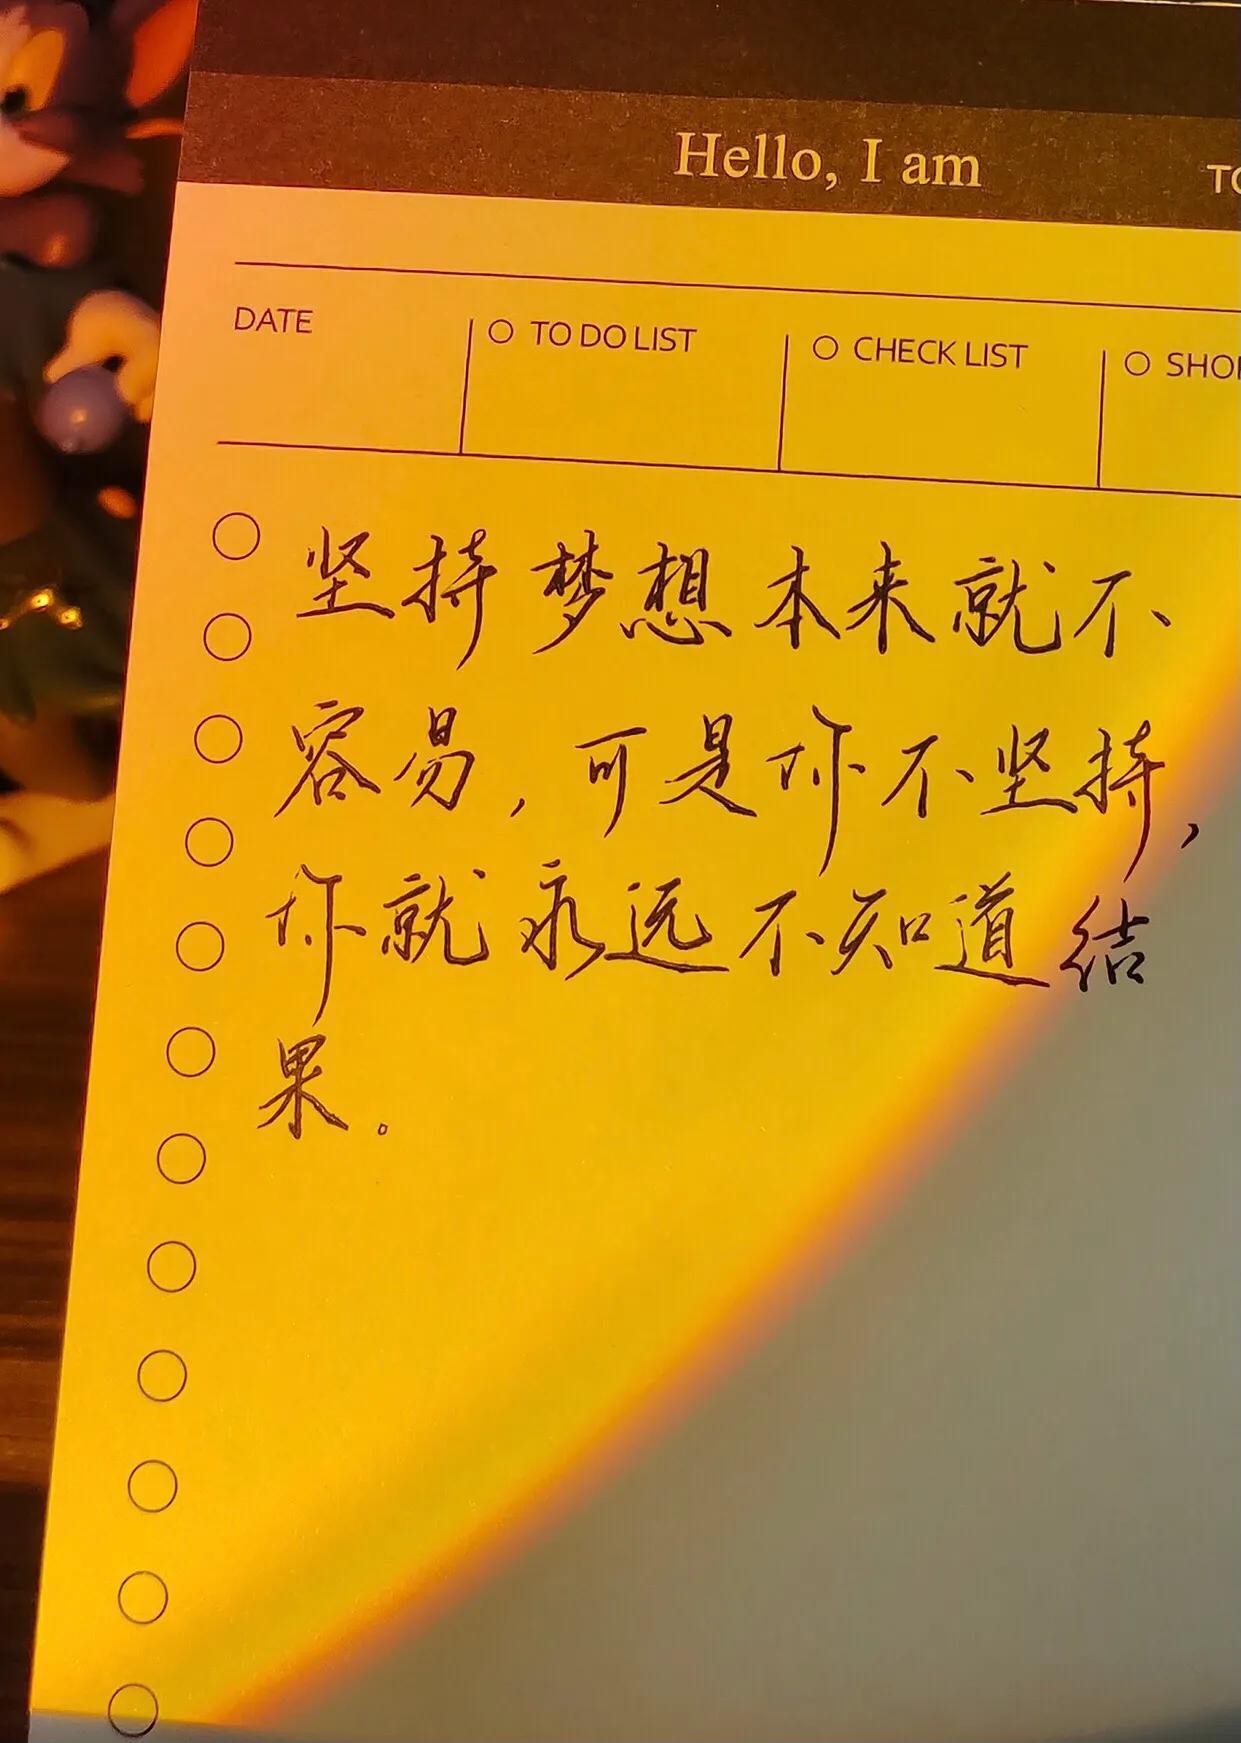 Hello, I am
TO
DATE
TO DO LIST
CHECK LIST
坚持梦想本来就不
容易，可是你不坚持，
你就永远不知道结
果。